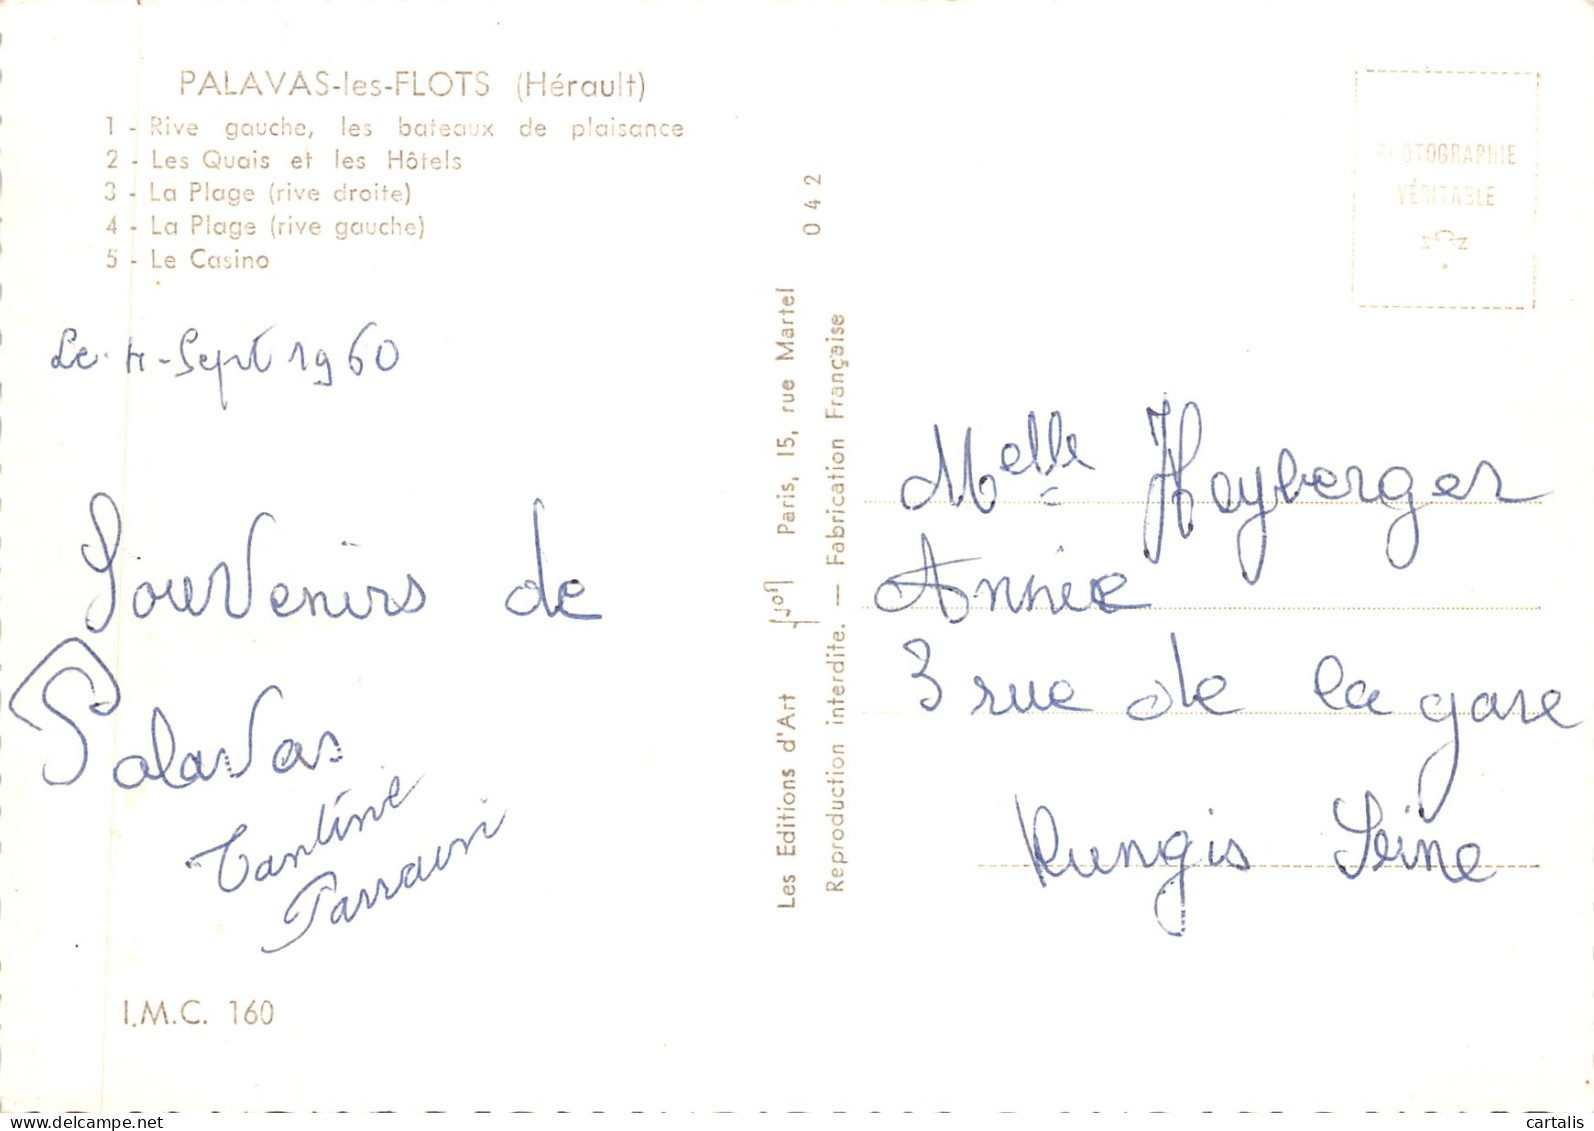 PALAVAS-les-FLOTS (Hérault)
1 - Rive gauche, les bateaux de plaisance
2 - Les Quais et les Hôtels
3 - La Plage (rive droite)
4 - La Plage (rive gauche)
5 - Le Casino
Le 4 - Sept 1960
Souvenirs de
Palavas
Tantine
Parrain
I.M.C. 160
Les Editions d'Art Paris, 15, rue Martel
042
Reproduction interdite. — Fabrication Française
PHOTOGRAPHIE
VÉRITABLE
Melle Heyberger
Annie
3 rue de la gare
Rungis Seine
www.delcampe.net
cartalis